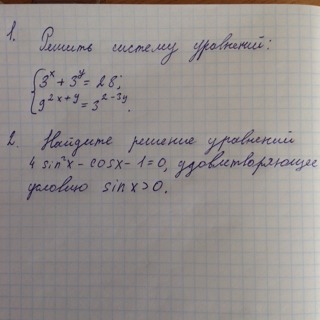 1. Решить систему уравнений:
3ˣ + 3ʸ = 28;
9²ˣ⁺ʸ = 3²⁻³ʸ.
2. Найдите решение уравнений
4 sin²x - cosx - 1 = 0, удовлетворяющее
условию sin x > 0.